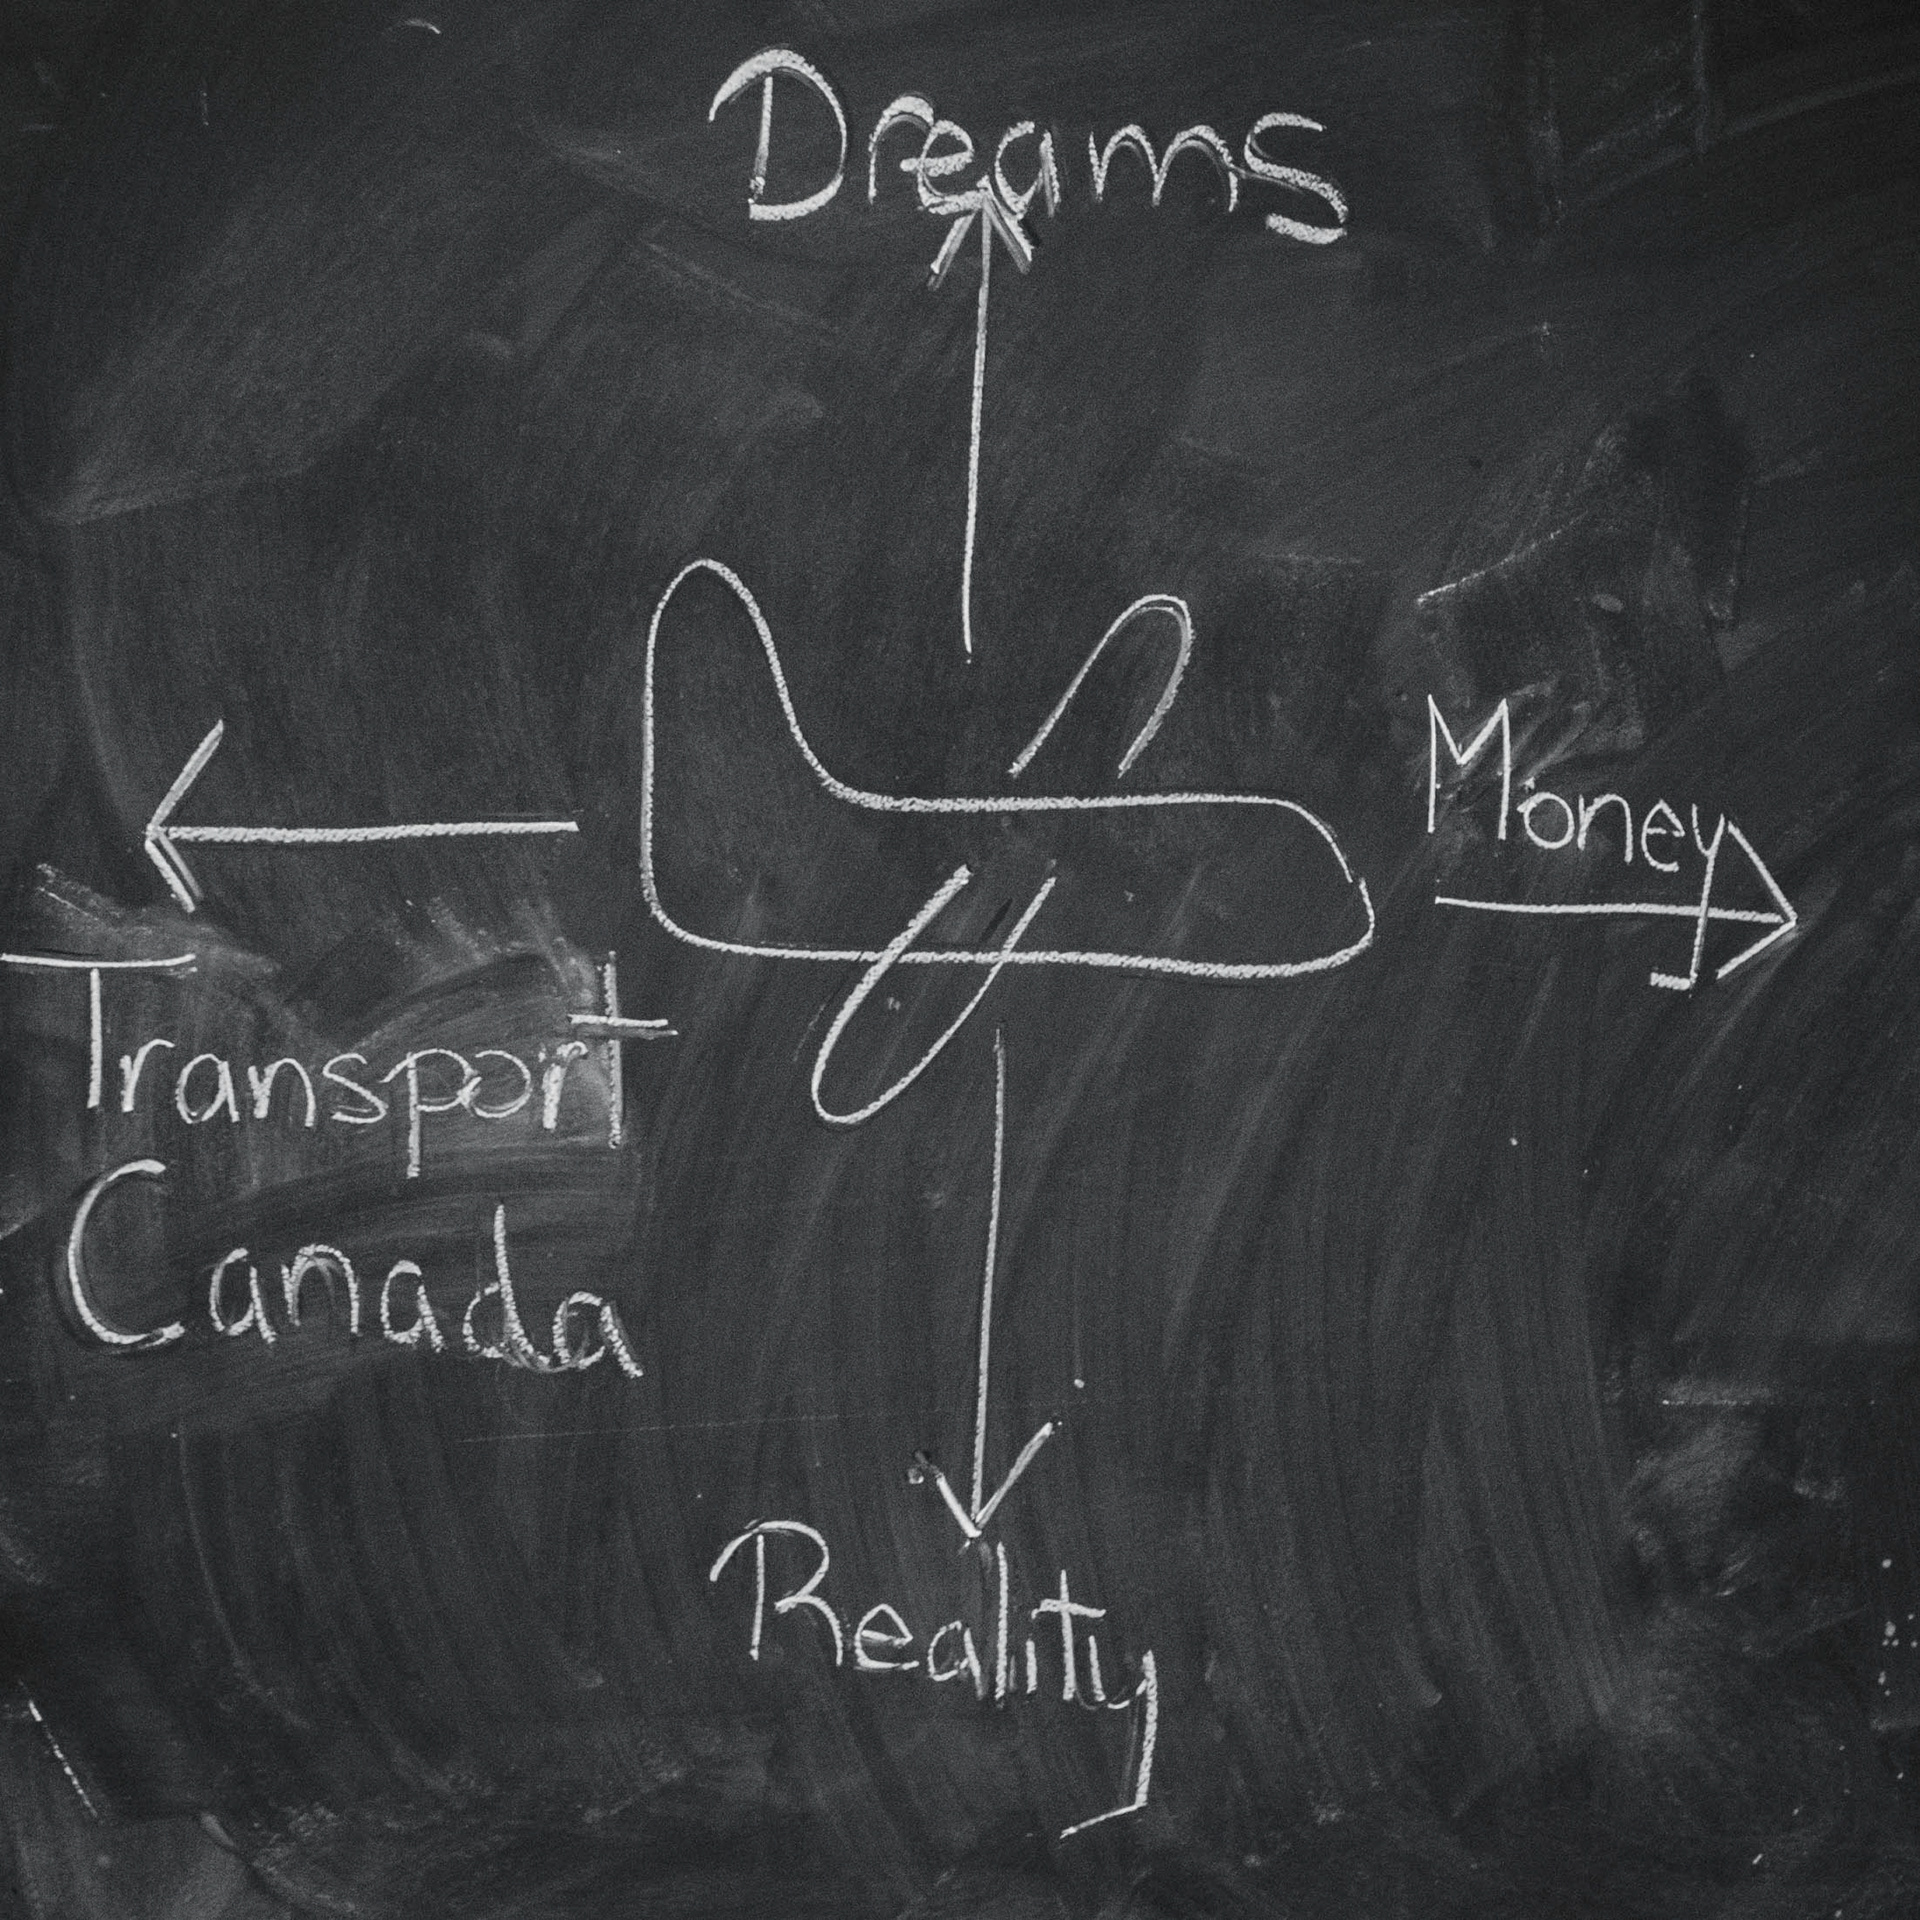 Dreams
Money
Transport
Canada
Reality